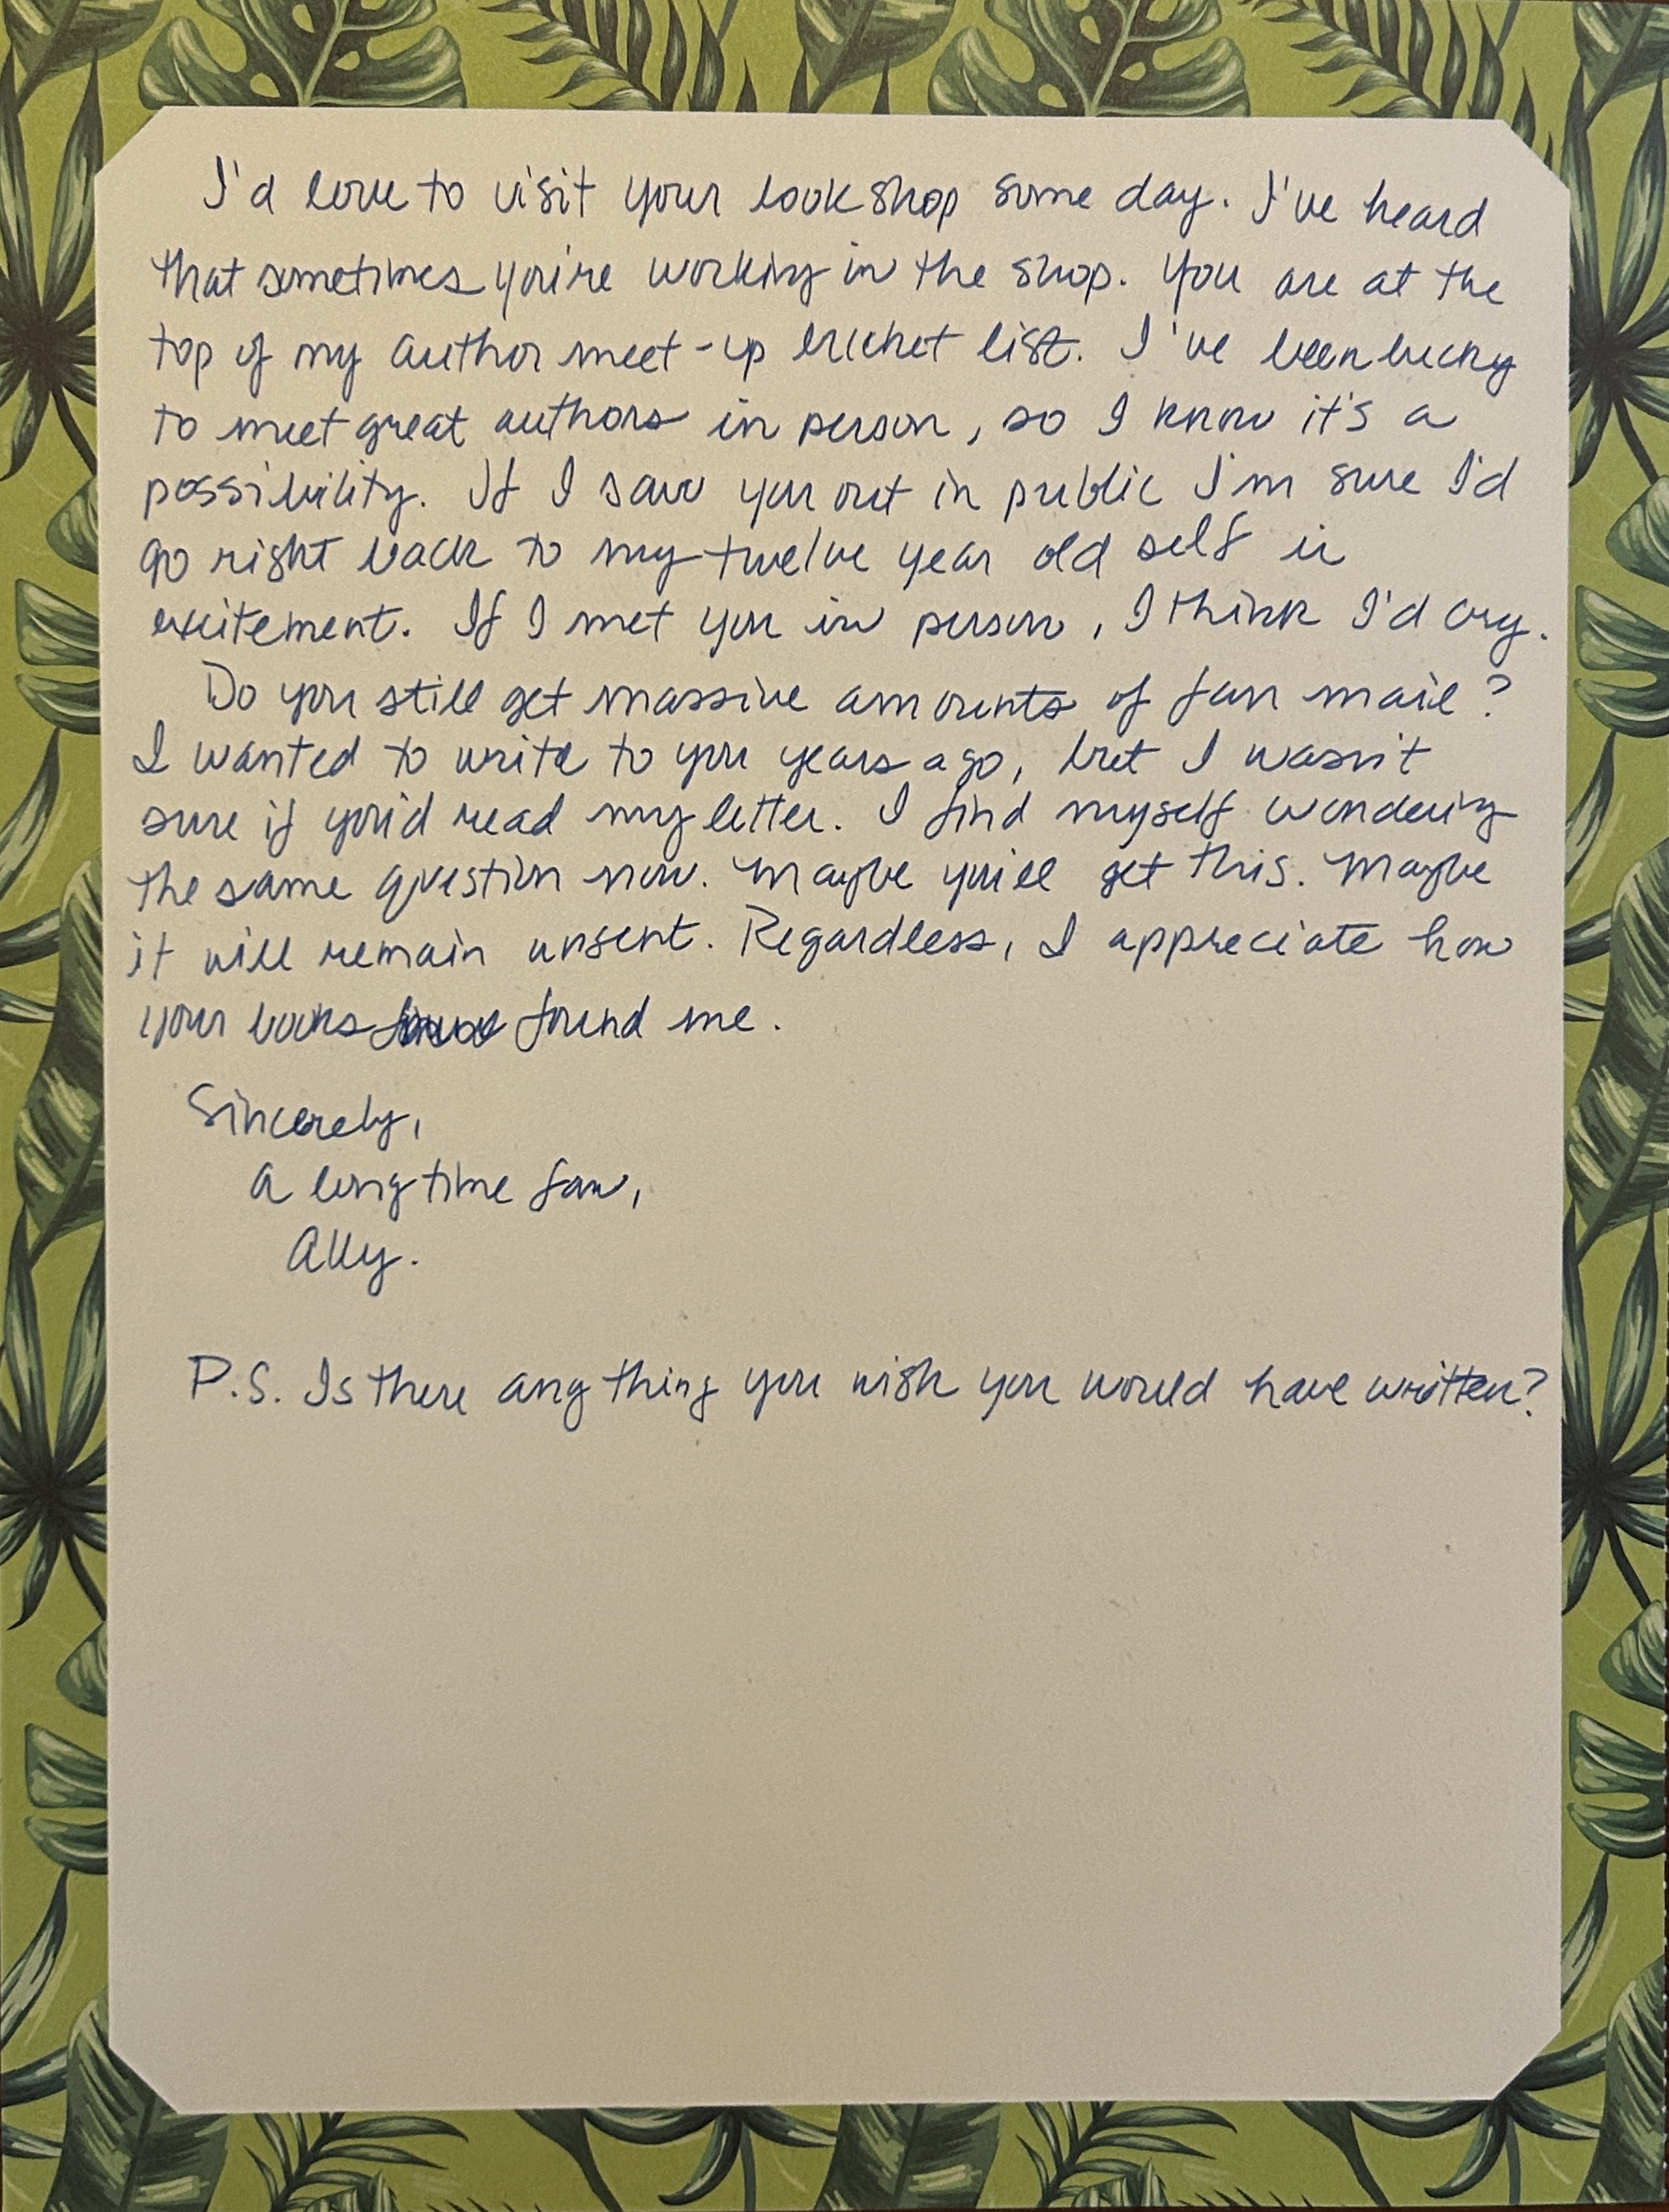 I'd love to visit your bookshop some day. I've heard
that sometimes you're working in the shop. You are at the
top of my author meet-up bucket list. I've been lucky
to meet great authors in person, so I know it's a
possibility. If I saw you out in public I'm sure I'd
go right back to my twelve year old self in
excitement. If I met you in person, I think I'd cry.
Do you still get massive amounts of fan mail?
I wanted to write to you years ago, but I wasn't
sure if you'd read my letter. I find myself wondering
the same question now. Maybe you'll get this. Maybe
it will remain unsent. Regardless, I appreciate how
your books found me.
Sincerely,
a longtime fan,
Ally.
P.S. Is there anything you wish you would have written?